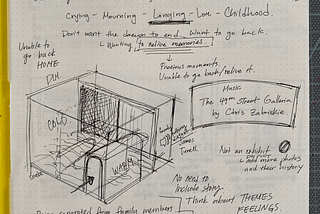 Crying - Mourning - Longing - Love - Childhood.
Don't want the dream to end. Want to go back.
Wanting to relive memories
Unable to
go back
HOME
Precious moments.
Unable to go back/relive it.
DIM
Music
The 49th Street Galleria
by Chris Zabriskie
COLD
WARM
James
Turrell
Not an exhibit
add more photos
and their history
No need to
include story.
Think about THEMES
FEELINGS
separated from family members